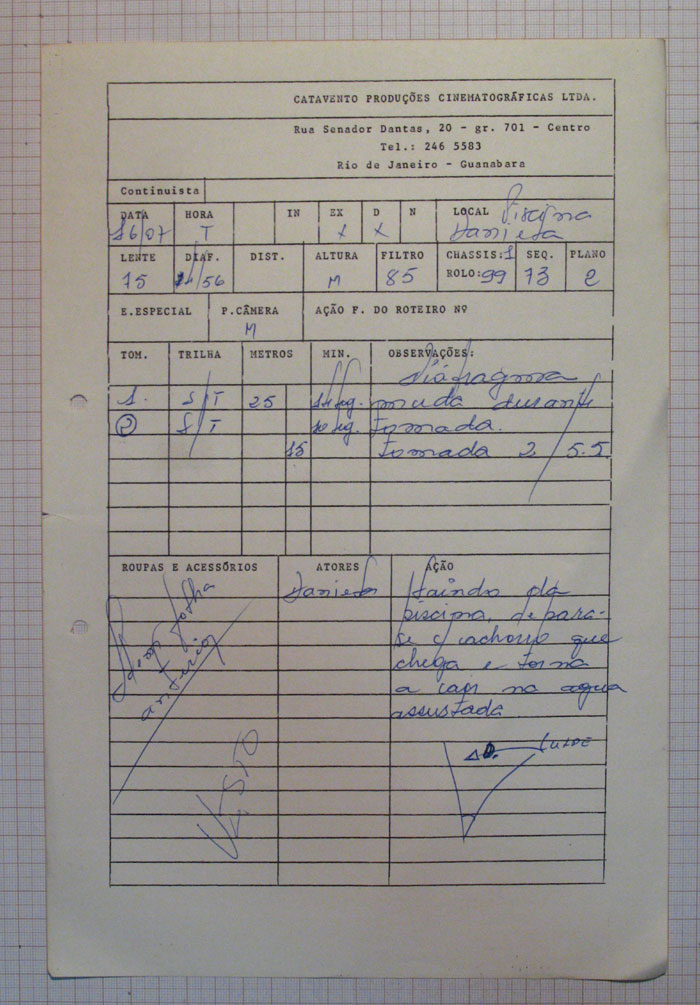 CATAVENTO PRODUÇÕES CINEMATOGRÁFICAS LTDA.
Rua Senador Dantas, 20 - gr. 701 - Centro
Tel.: 246 5583
Rio de Janeiro - Guanabara
Continuista
DATA HORA IN EX D N LOCAL Piscina
16/07 T X X Daniela
LENTE DIAF. DIST. ALTURA FILTRO CHASSIS: 1 SEQ. PLANO
75 /56 M 85 ROLO: 99 73 2
E.ESPECIAL P.CÂMERA AÇÃO F. DO ROTEIRO Nº
M
TOM. TRILHA METROS MIN. OBSERVAÇÕES:
Diáfragma
1. S/T 25 seg. muda durante
2 S/T 10 seg. tomada.
15 tomada 2 / 5.5
ROUPAS E ACESSÓRIOS ATORES AÇÃO
Daniela Saindo da
piscina, depara-
se c/ cachorro que
chega e torna
a cair na agua
assustada
folha
anterior
VISTO